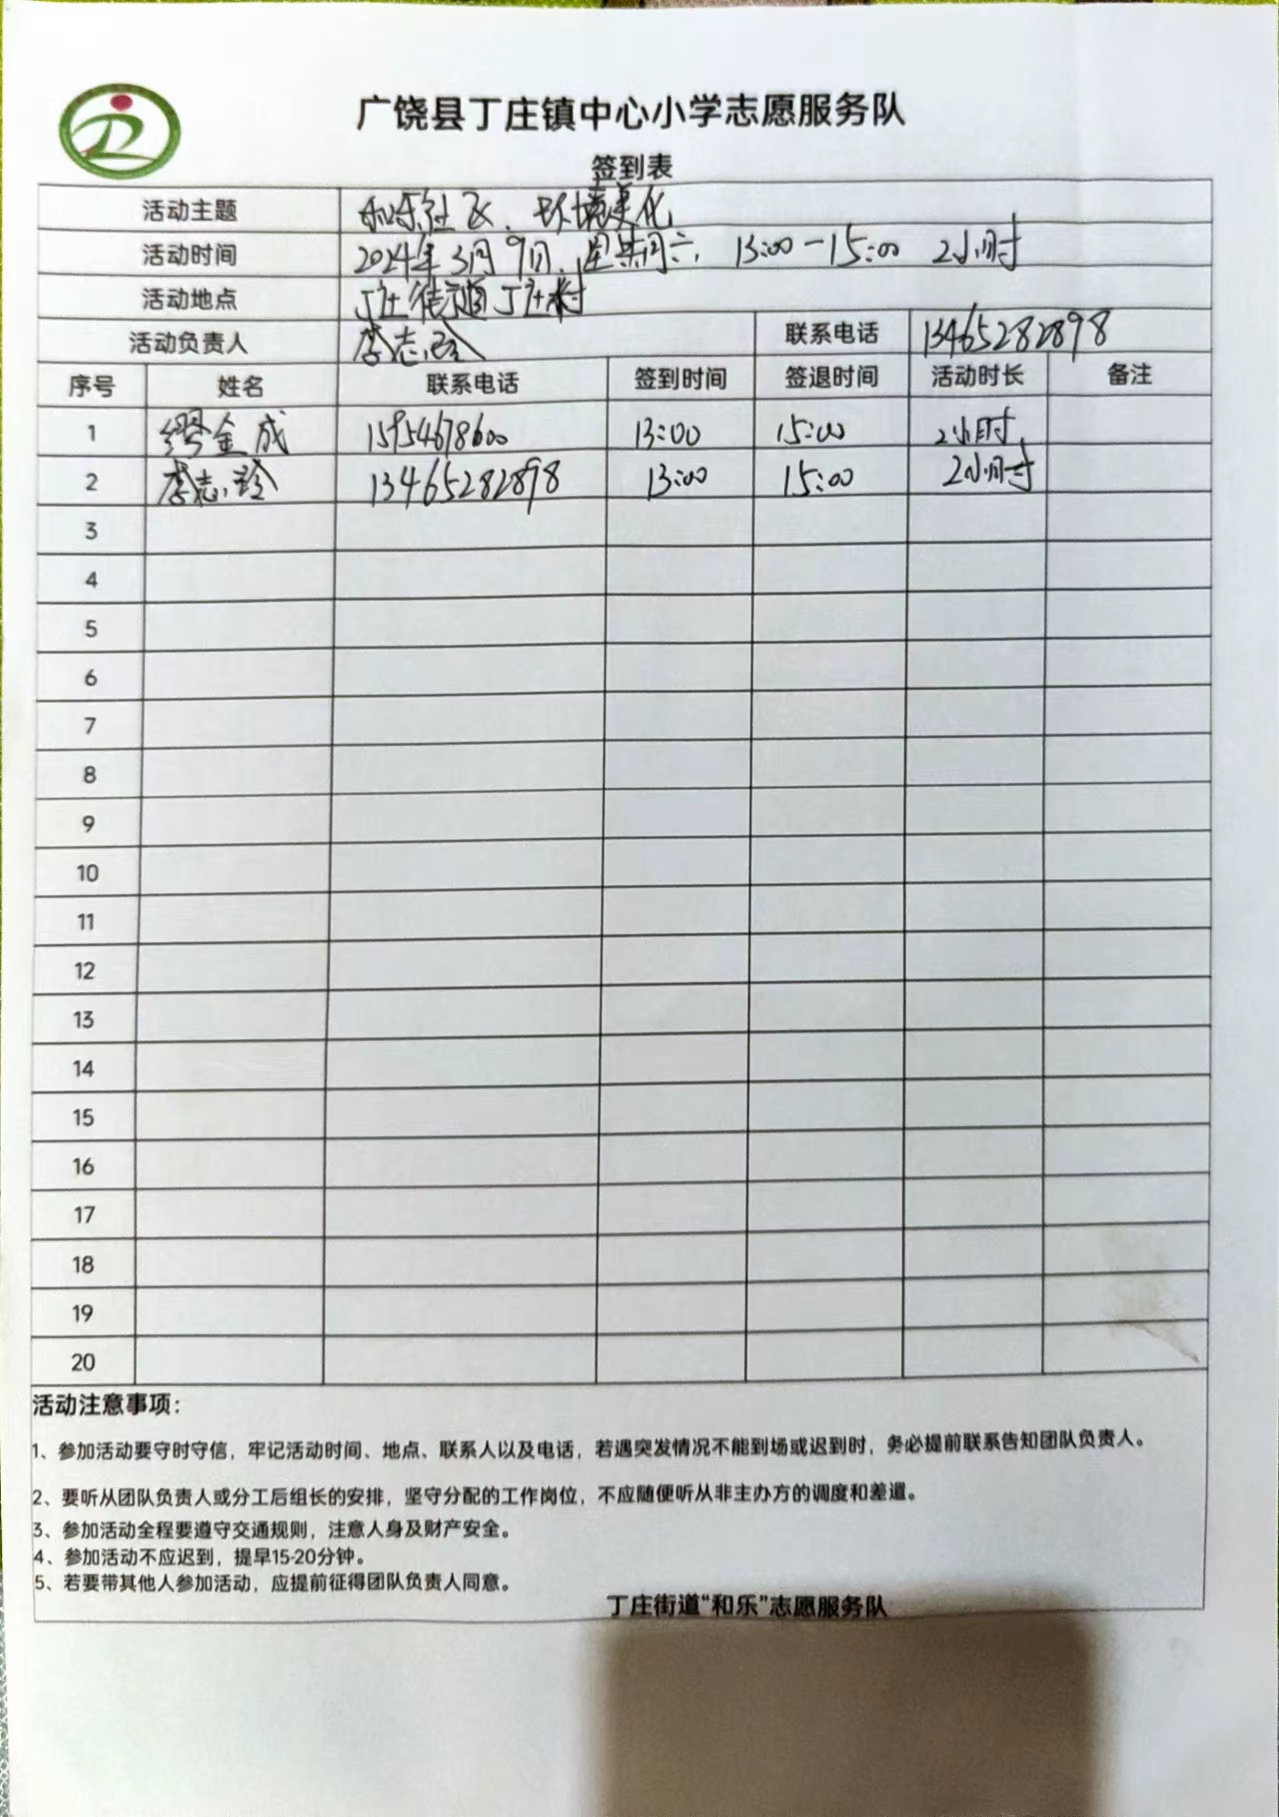 广饶县丁庄镇中心小学志愿服务队
签到表
活动主题 和乐社区、环境美化
活动时间 2024年3月9日、星期六、13:00-15:00 2小时
活动地点 丁庄街道丁庄村
活动负责人 李志玲 联系电话 13465282898
序号 姓名 联系电话 签到时间 签退时间 活动时长 备注
1 缪金成 15954678600 13:00 15:00 2小时
2 李志玲 13465282898 13:00 15:00 2小时
3
4
5
6
7
8
9
10
11
12
13
14
15
16
17
18
19
20
活动注意事项：
1、参加活动要守时守信，牢记活动时间、地点、联系人以及电话，若遇突发情况不能到场或迟到时，务必提前联系告知团队负责人。
2、要听从团队负责人或分工后组长的安排，坚守分配的工作岗位，不应随便听从非主办方的调度和差遣。
3、参加活动全程要遵守交通规则，注意人身及财产安全。
4、参加活动不应迟到，提早15-20分钟。
5、若要带其他人参加活动，应提前征得团队负责人同意。
丁庄街道“和乐”志愿服务队